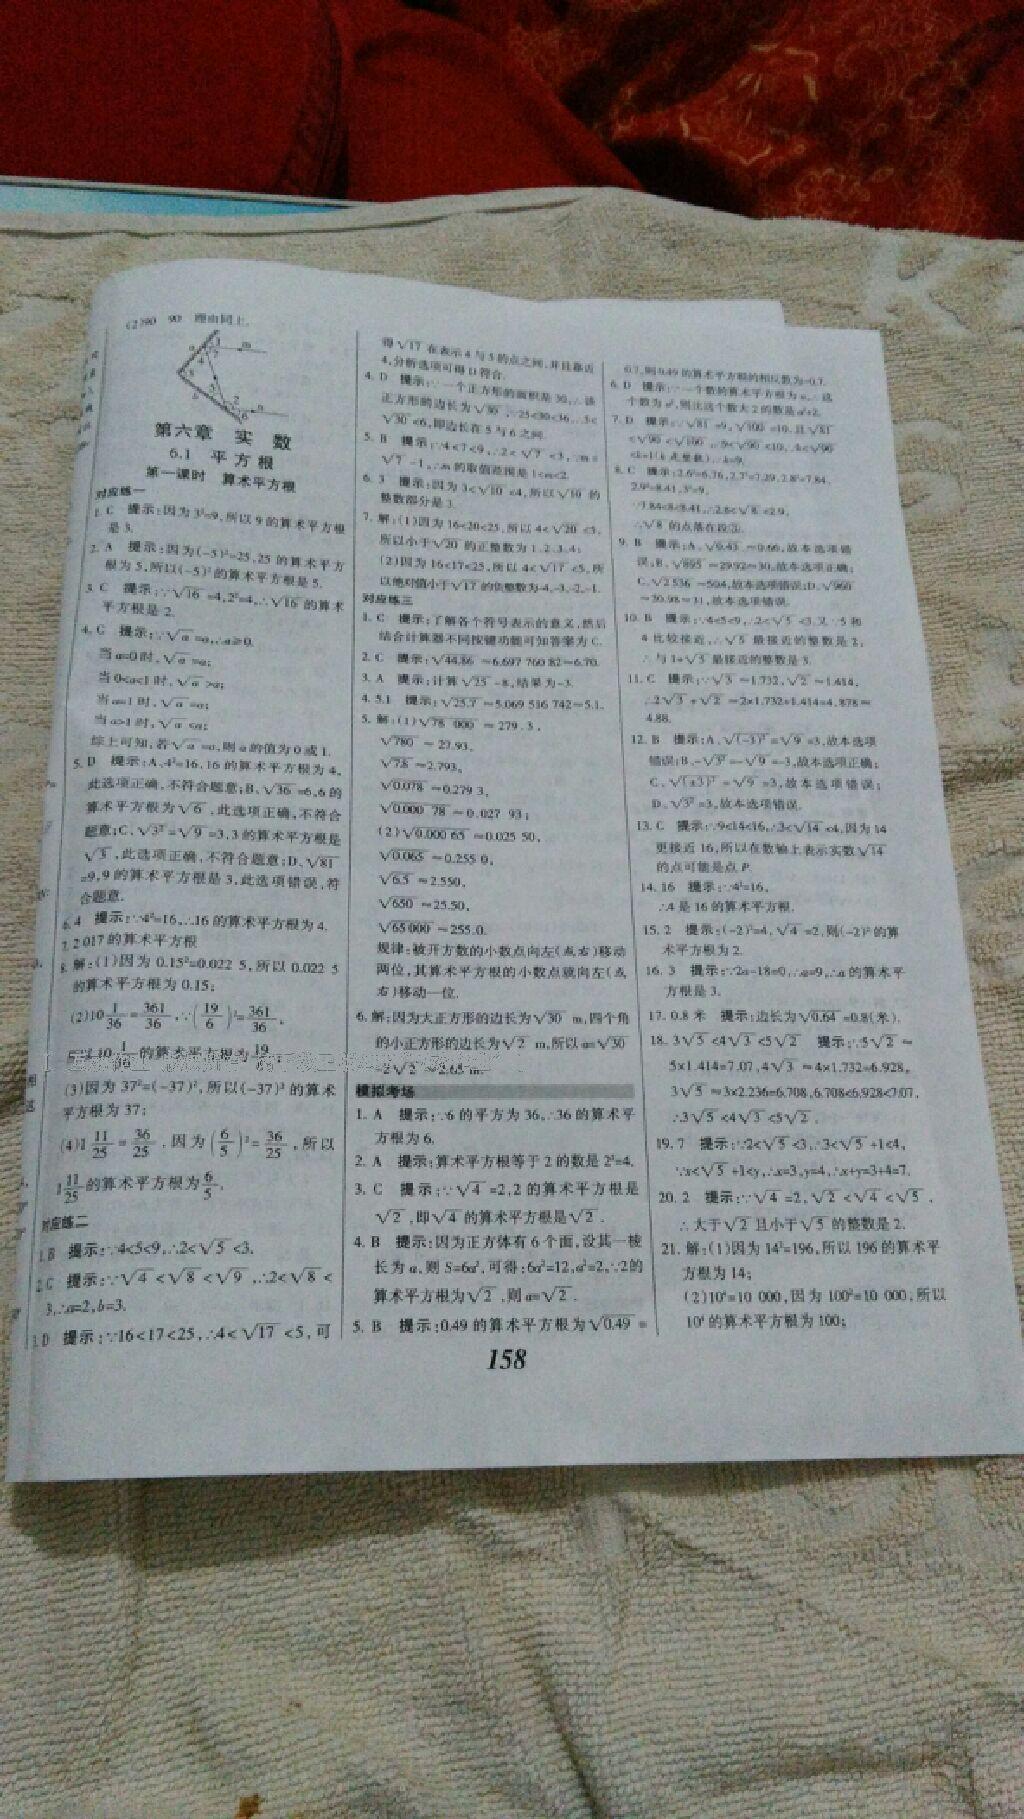 (2)90 90 理由同上.
第六章 实 数
6.1 平方根
第一课时 算术平方根
对应练一
1. C 提示:因为3²=9,所以9的算术平方根
是3.
2. A 提示:因为(-5)²=25,25的算术平方
根为5,所以(-5)²的算术平方根是5.
3. C 提示:∵√16=4,2²=4,∴√16的算术
平方根是2.
4. C 提示:∵√a=a,∴a≥0.
当a=0时,√a=a;
当0<a<1时,√a>a;
当a=1时,√a=a;
当a>1时,√a<a;
综上可知,若√a=a,则a的值为0或1.
5. D 提示:A、4²=16,16的算术平方根为4,
此选项正确,不符合题意;B、√36=6,6的
算术平方根为√6,此选项正确,不符合
题意;C、√3²=√9=3,3的算术平方根是
√3,此选项正确,不符合题意;D、√81
=9,9的算术平方根是3,此选项错误,符
合题意.
6. 4 提示:∵4²=16,∴16的算术平方根为4.
7. 2 017的算术平方根
8. 解:(1)因为0.15²=0.022 5,所以0.022 5
的算术平方根为0.15;
(2)10 1/36=361/36,∵(19/6)²=361/36,
的算术平方根为
(3)因为37²=(-37)²,所以(-37)²的算术
平方根为37;
(4)1 11/25=36/25,因为(6/5)²=36/25,所以
1 11/25的算术平方根为6/5.
对应练二
1. B 提示:∵4<5<9,∴2<√5<3.
2. C 提示:∵√4<√8<√9,∴2<√8<
3,∴a=2,b=3.
3. D 提示:∵16<17<25,∴4<√17<5,可
得√17在表示4与5的点之间,并且靠近
4,分析选项可得D符合.
4. D 提示:∵一个正方形的面积是30,∴该
正方形的边长为√30,∵25<30<36,∴5<
√30<6,即边长在5与6之间.
5. B 提示:∵4<7<9,∴2<√7<3,∵m=
√7-1,∴m的取值范围是1<m<2.
6. 3 提示:因为3<√10<4,所以√10的
整数部分是3.
7. 解:(1)因为16<20<25,所以4<√20<5,
所以小于√20的正整数为1、2、3、4;
(2)因为16<17<25,所以4<√17<5,所
以绝对值小于√17的负整数为-4、-3、-2、-1.
对应练三
1. C 提示:了解各个符号表示的意义,然后
结合计算器不同按键功能可知答案为C.
2. C 提示:√44.86≈6.697 760 82≈6.70.
3. A 提示:计算√25-8,结果为-3.
4. 5.1 提示:√25.7≈5.069 516 742≈5.1.
5. 解:(1)√78 000≈279.3,
√780≈27.93,
√7.8≈2.793,
√0.078≈0.279 3,
√0.000 78≈0.027 93;
(2)√0.000 65≈0.025 50,
√0.065≈0.255 0,
√6.5≈2.550,
√650≈25.50,
√65 000≈255.0.
规律:被开方数的小数点向左(或右)移动
两位,其算术平方根的小数点就向左(或
右)移动一位.
6. 解:因为大正方形的边长为√30 m,四个角
的小正方形的边长为√2 m,所以a=√30
-2√2≈2.65 m.
模拟考场
1. A 提示:∵6的平方为36,∴36的算术平
方根为6.
2. A 提示:算术平方根等于2的数是2²=4.
3. C 提示:∵√4=2,2的算术平方根是
√2,即√4的算术平方根是√2.
4. B 提示:因为正方体有6个面,设其一棱
长为a,则S=6a²,可得:6a²=12,a²=2,∴2的
算术平方根为√2,则a=√2.
5. B 提示:0.49的算术平方根为√0.49=
0.7,则0.49的算术平方根的相反数为-0.7.
6. D 提示:∵一个数的算术平方根为a,∴这
个数为a²,则比这个数大2的数是a²+2.
7. D 提示:∵√81=9,√100=10,且√81
<√90<√100,∴9<√90<10,∵k<√90
<k+1(k是整数),∴k=9.
8. C 提示:2.6²=6.76,2.7²=7.29,2.8²=7.84,
2.9²=8.41,3²=9,
∵7.84<8<8.41,∴2.8<√8<2.9,
∴√8的点落在段③.
9. B 提示:A、√0.43≈0.66,故本选项错
误;B、√895≈29.92≈30,故本选项正确;
C、√2 536≈50.4,故本选项错误;D、√960
≈30.98≈31,故本选项错误.
10. B 提示:∵4<5<9,∴2<√5<3.又∵5和
4比较接近,∴√5最接近的整数是2,
∴与1+√5最接近的整数是3.
11. C 提示:∵√3≈1.732,√2≈1.414,
∴2√3+√2≈2×1.732+1.414=4.878≈
4.88.
12. B 提示:A、√(-3)²=√9=3,故本选项
错误;B、-√3²=-√9=-3,故本选项正确;
C、√(±3)²=√9=3,故本选项错误;
D、√3²=3,故本选项错误.
13. C 提示:∵9<14<16,∴3<√14<4,因为14
更接近16,所以在数轴上表示实数√14
的点可能是点P.
14. 16 提示:∵4²=16,
∴4是16的算术平方根.
15. 2 提示:(-2)²=4,√4=2,则(-2)²的算
术平方根为2.
16. 3 提示:∵2a-18=0,∴a=9,∴a的算术平
方根是3.
17. 0.8米 提示:边长为√0.64=0.8(米).
18. 3√5<4√3<5√2 提示:∵5√2≈
5×1.414=7.07,4√3≈4×1.732=6.928,
3√5≈3×2.236=6.708,6.708<6.928<7.07,
∴3√5<4√3<5√2.
19. 7 提示:∵2<√5<3,∴3<√5+1<4,
∵x<√5+1<y,∴x=3,y=4,∴x+y=3+4=7.
20. 2 提示:∵√4=2,√2<√4<√5,
∴大于√2且小于√5的整数是2.
21. 解:(1)因为14²=196,所以196的算术平
方根为14;
(2)10⁴=10 000,因为100²=10 000,所以
10⁴的算术平方根为100;
158